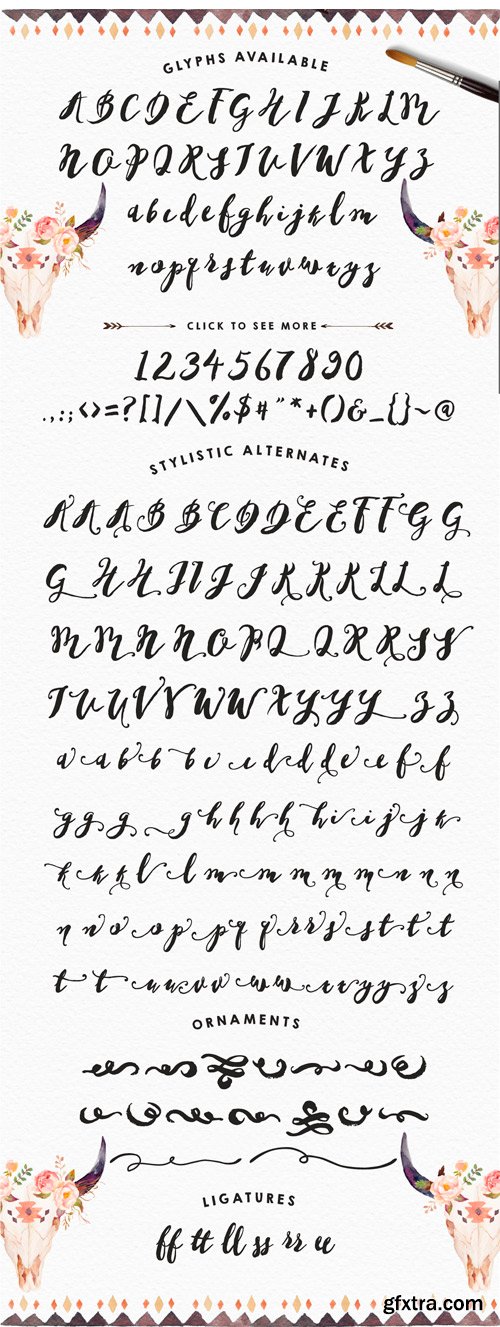 GLYPHS AVAILABLE
A B C D E F G H I J K L M
N O P Q R S T U V W X Y Z
a b c d e f g h i j k l m
n o p q r s t u v w x y z
CLICK TO SEE MORE
1 2 3 4 5 6 7 8 9 0
.,:;<>=?[]/\%$#"*+()&_{}~@
STYLISTIC ALTERNATES
A A A B B C D D E E F F G G
G H H I J J J K K K L L L
M M N N O P Q Q R R S S
T U U V V W W X Y Y Y Z Z
a a b b b c c d d d e e f f
g g g g h h h h h i i j j k
k k k l l l m m m m m n n n
n n o o p p q q r r s s t t t
t t u u v v w w x x y y z z
ORNAMENTS
LIGATURES
ff tt ll ss rr ee
gfxtra.com